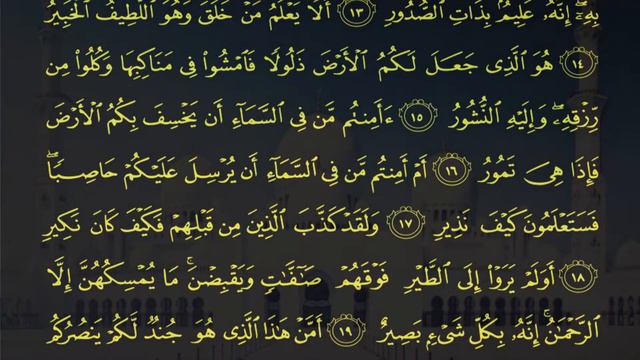 بِهِۦٓ ۖ إِنَّهُۥ عَلِيمٌۢ بِذَاتِ ٱلصُّدُورِ ١٣ أَلَا يَعْلَمُ مَنْ خَلَقَ وَهُوَ ٱللَّطِيفُ ٱلْخَبِيرُ
١٤ هُوَ ٱلَّذِى جَعَلَ لَكُمُ ٱلْأَرْضَ ذَلُولًا فَٱمْشُوا۟ فِى مَنَاكِبِهَا وَكُلُوا۟ مِن
رِّزْقِهِۦ ۖ وَإِلَيْهِ ٱلنُّشُورُ ١٥ ءَأَمِنتُم مَّن فِى ٱلسَّمَآءِ أَن يَخْسِفَ بِكُمُ ٱلْأَرْضَ
فَإِذَا هِىَ تَمُورُ ١٦ أَمْ أَمِنتُم مَّن فِى ٱلسَّمَآءِ أَن يُرْسِلَ عَلَيْكُمْ حَاصِبًا ۖ
فَسَتَعْلَمُونَ كَيْفَ نَذِيرِ ١٧ وَلَقَدْ كَذَّبَ ٱلَّذِينَ مِن قَبْلِهِمْ فَكَيْفَ كَانَ نَكِيرِ
١٨ أَوَلَمْ يَرَوْا۟ إِلَى ٱلطَّيْرِ فَوْقَهُمْ صَٰٓفَّٰتٍ وَيَقْبِضْنَ ۚ مَا يُمْسِكُهُنَّ إِلَّا
ٱلرَّحْمَٰنُ ۚ إِنَّهُۥ بِكُلِّ شَىْءٍۭ بَصِيرٌ ١٩ أَمَّنْ هَٰذَا ٱلَّذِى هُوَ جُندٌ لَّكُمْ يَنصُرُكُم